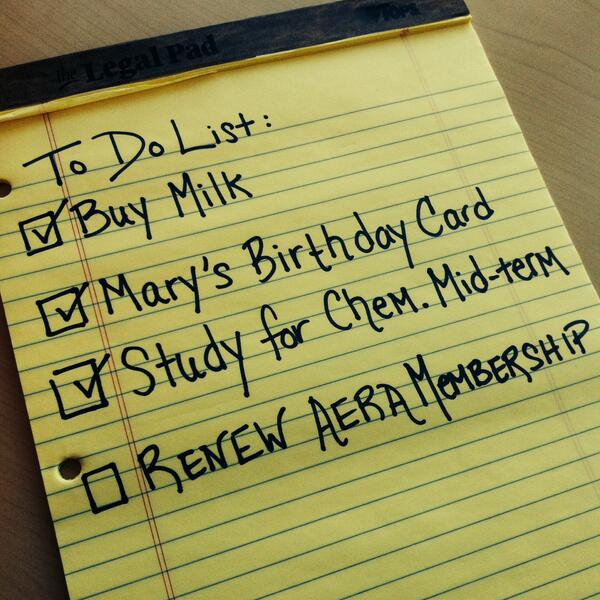 the Legal Pad
TOPS
To Do List:
Buy Milk
Mary's Birthday Card
Study for Chem. Mid-term
RENEW AERA MEMBERSHIP